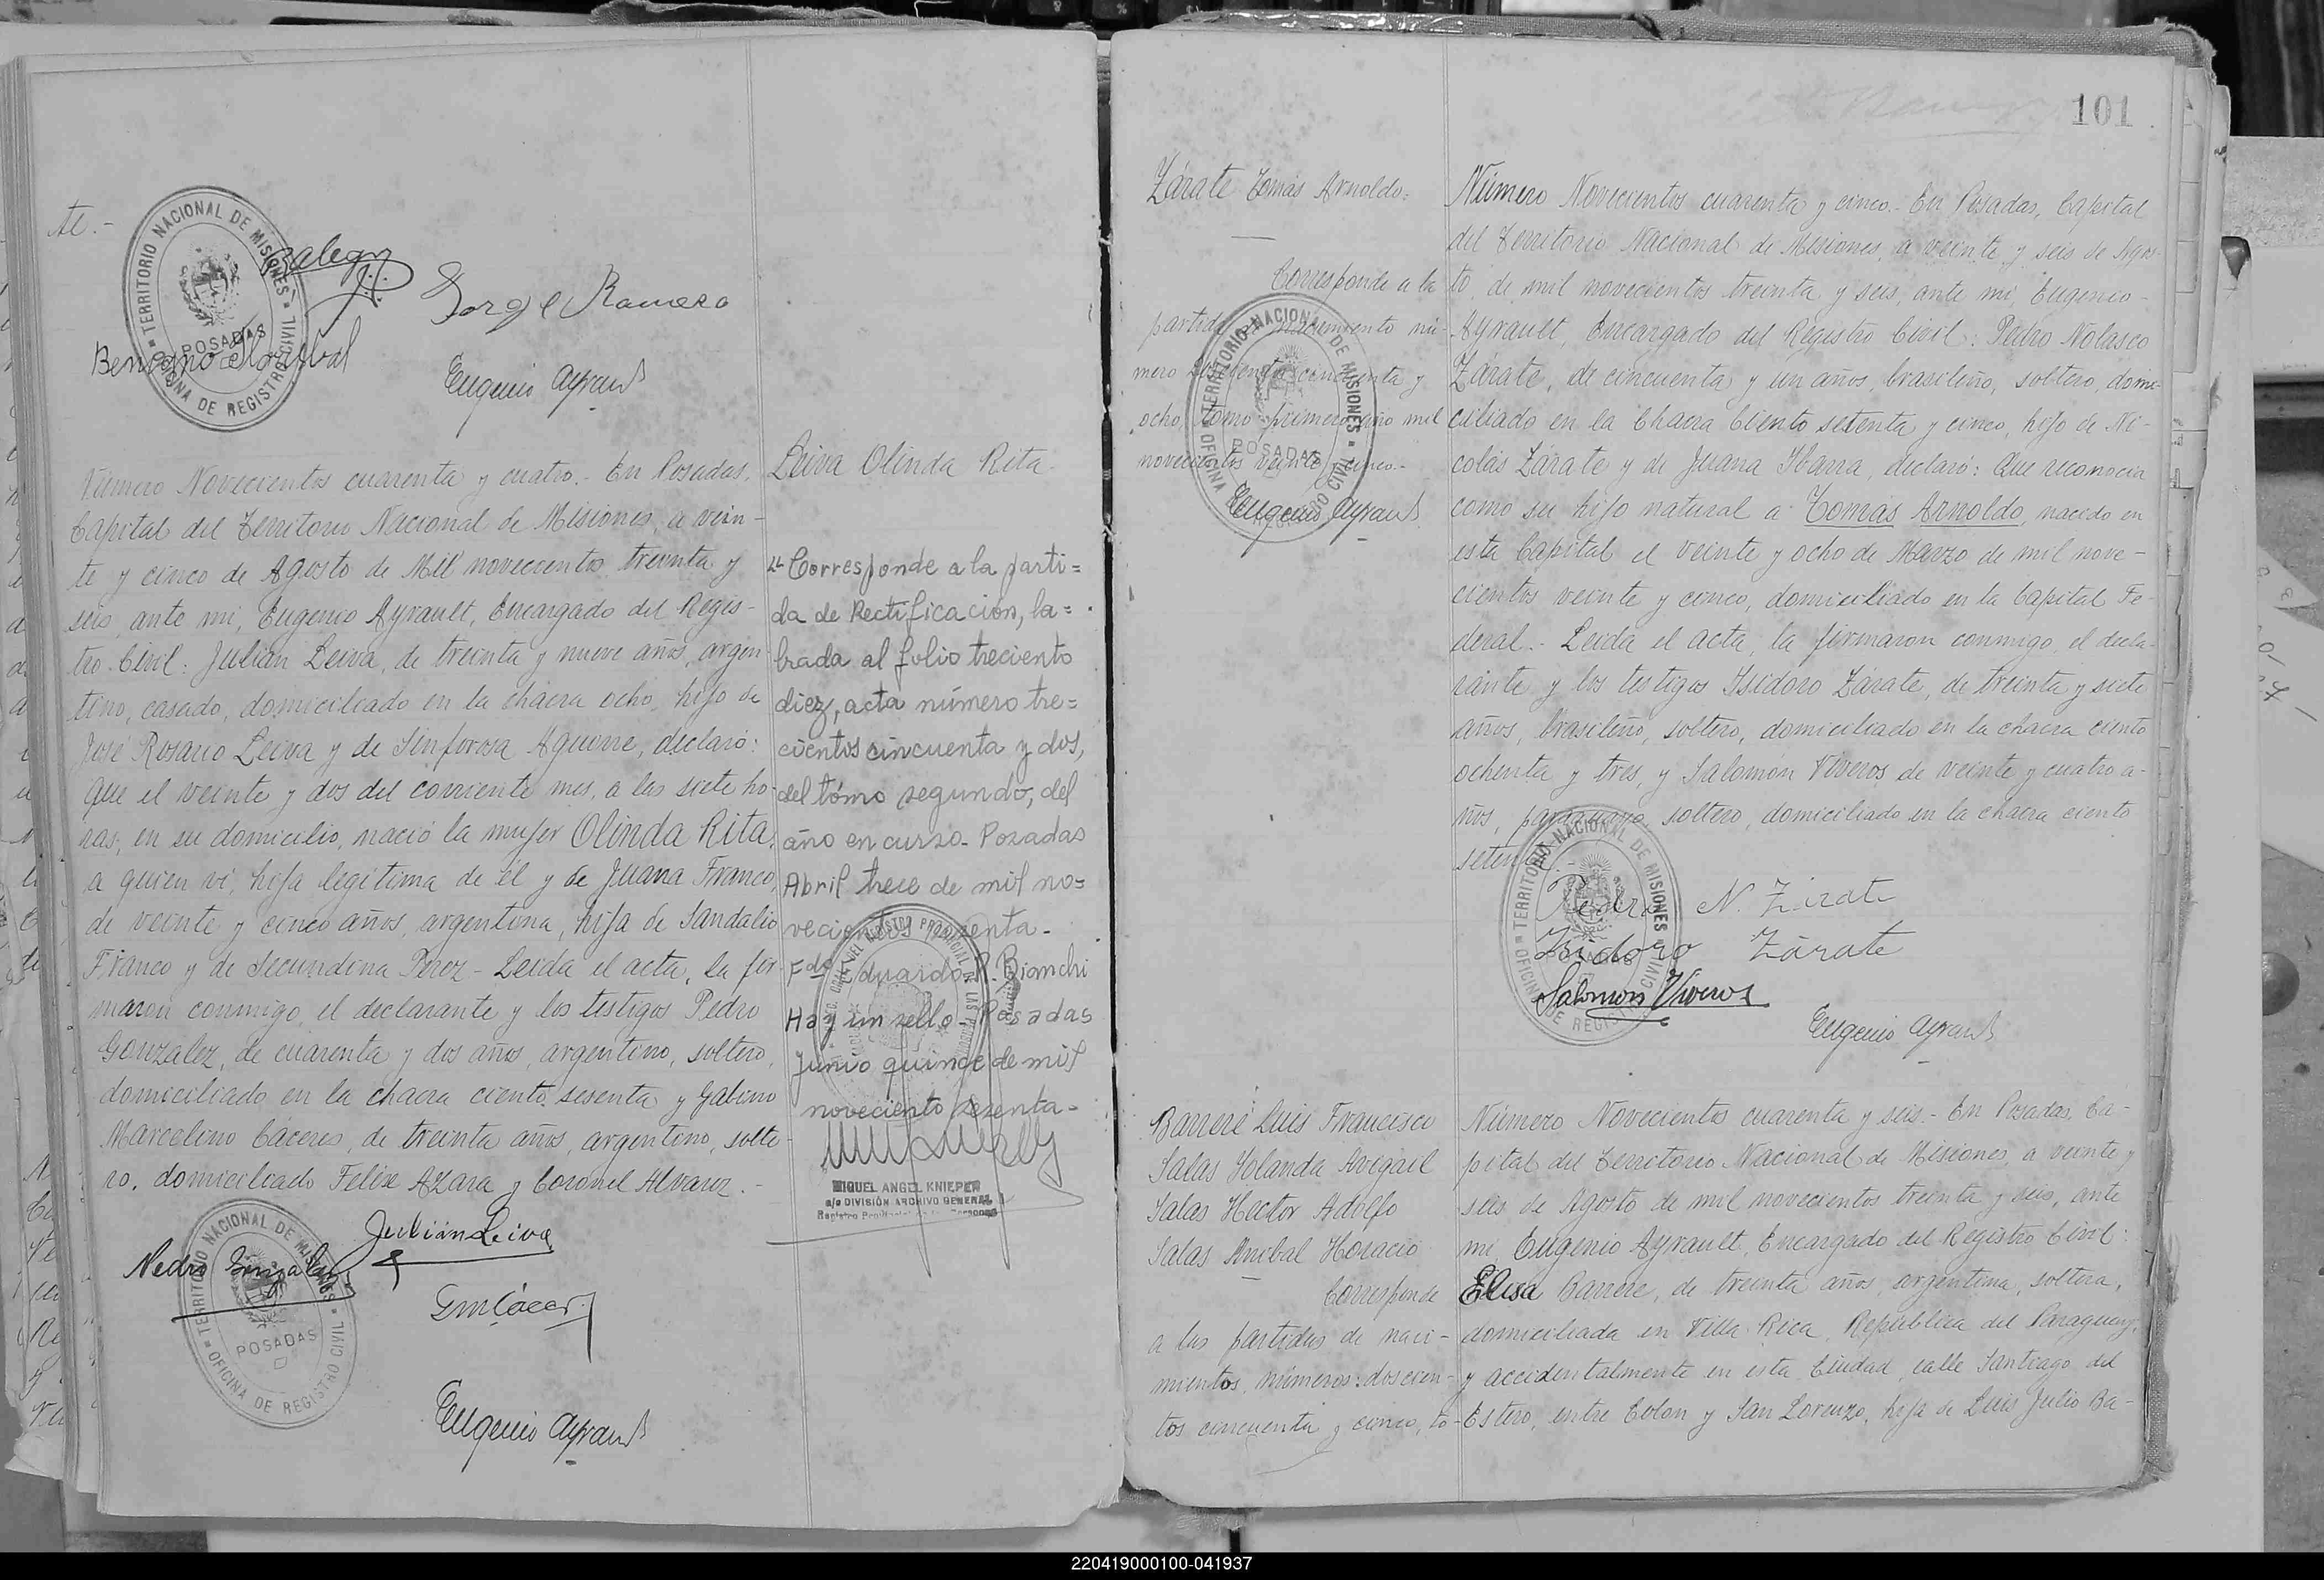 te.-
TERRITORIO NACIONAL DE MISIONES
POSADAS
OFICINA DE REGISTRO CIVIL
Jorge Ramero
Eugenio Ayrault
Número Novecientos cuarenta y cuatro.- En Posadas,
Capital del Territorio Nacional de Misiones, a vein-
te y cinco de Agosto de Mil novecientos treinta y
seis, ante mi, Eugenio Ayrault, Encargado del Regis-
tro Civil: Julián Leiva, de treinta y nueve años, argen
tino, casado, domiciliado en la chacra ocho, hijo de
José Rosario Leiva y de Sinforosa Aguirre, declaró:
Que el veinte y dos del corriente mes, a las siete ho-
ras, en su domicilio, nació la mujer Olinda Rita,
a quien vi, hija legítima de él y de Juana Franco,
de veinte y cinco años, argentina, hija de Sandalio
Franco y de Secundina Perez - Leida el acta, la fir
maron conmigo, el declarante y los testigos Pedro
Gonzalez, de cuarenta y dos años, argentino, soltero,
domiciliado en la chacra ciento sesenta y Gabino
Marcelino Cáceres, de treinta años, argentino, solte-
ro, domiciliado Felix Azara y Coronel Alvarez.-
Julián Leiva
Pedro Gonzalez
GmCácer
TERRITORIO NACIONAL DE MISIONES
POSADAS
OFICINA DE REGISTRO CIVIL
Eugenio Ayrault
Leiva Olinda Rita
Corresponde a la parti=
da de Rectificación, la=
brada al folio treciento
diez, acta número tre=
cientos cincuenta y dos,
del tómo segundo, del
año en curso.- Posadas
Abril trece de mil no=
vecientos
Fdo Eduardo R. Bianchi
Hay un sello - Posadas
Junio quince de mil
noveciento sesenta-
MIGUEL ANGEL KNIEPER
a/c DIVISIÓN ARCHIVO GENERAL
101
Zárate Tomás Arnoldo=
Corresponde a la
partida de nacimiento nú-
mero doscientos cincuenta y
ocho, tomo primero año mil
novecientos veinte y cinco.-
Eugenio Ayrault
TERRITORIO NACIONAL DE MISIONES
POSADAS
OFICINA DE REGISTRO CIVIL
Número Novecientos cuarenta y cinco.- En Posadas, Capital
del Territorio Nacional de Misiones, a veinte y seis de Agos-
to, de mil novecientos treinta y seis, ante mi, Eugenio-
Ayrault, Encargado del Registro Civil: Pedro Nolasco
Zárate, de cincuenta y un años, brasileño, soltero, domi-
ciliado en la Chacra Ciento setenta y cinco, hijo de Ni-
colás Zárate y de Juana Ibarra, declaró: Que reconocía
como su hijo natural a Tomás Arnoldo, nacido en
esta Capital el veinte y ocho de Marzo de mil nove-
cientos veinte y cinco, domiciliado en la Capital Fe-
deral.- Leida el acta, la firmaron conmigo, el decla-
rante y los testigos Isidoro Zárate, de treinta y siete
años, brasileño, soltero, domiciliado en la chacra ciento
ochenta y tres, y Salomón Viveros de veinte y cuatro a-
ños, paraguayo, soltero, domiciliado en la chacra ciento
setenta.-
TERRITORIO NACIONAL DE MISIONES
OFICINA DE REGISTRO CIVIL
Pedro N. Zárate
Isidoro Zárate
Salomon Viveros
Eugenio Ayrault
Barreré Luis Francisco
Salas Yolanda Avigail
Salas Hector Adolfo
Salas Anibal Horacio
Corresponde
a las partidas de naci-
mientos, números: doscien-
tos cincuenta y cinco, to-
Número Novecientos cuarenta y seis.- En Posadas, Ca-
pital del Territorio Nacional de Misiones, a veinte y
seis de Agosto de mil novecientos treinta y seis, ante
mi, Eugenio Ayrault, Encargado del Registro Civil:
Elisa Barrere, de treinta años, argentina, soltera,
domiciliada en Villa Rica, República del Paraguay,
y accidentalmente en esta Ciudad, calle Santiago del
Estero, entre Colon y San Lorenzo, hija de Luis Julio Ba-
220419000100-041937